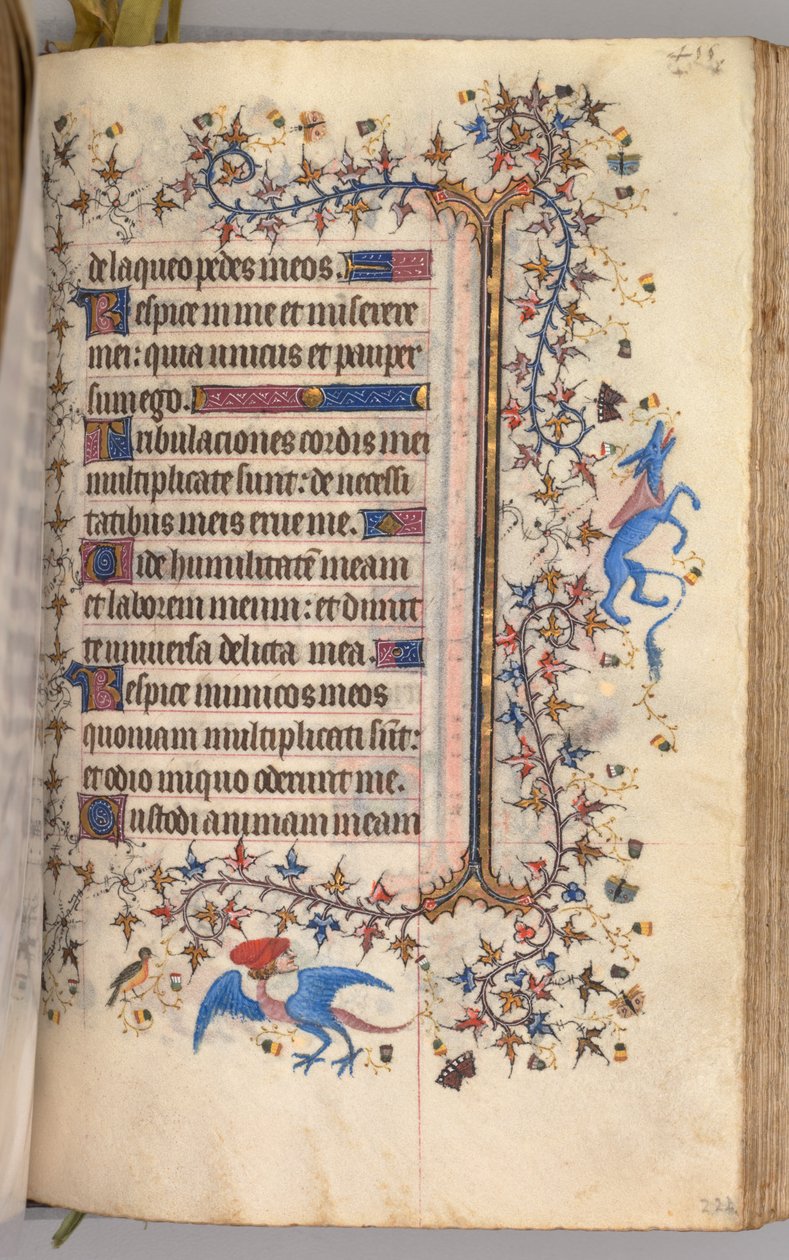 411
de laqueo pedes meos.
Respice in me et miserere
mei: quia unicus et pauper
sum ego.
Tribulaciones cordis mei
multiplicate sunt: de necessi
tatibus meis erue me.
Vide humilitatē meam
et laborem meum: et dimit
te universa delicta mea.
Respice inimicos meos
quoniam multiplicati sūt:
et odio iniquo oderunt me.
Custodi animam meam